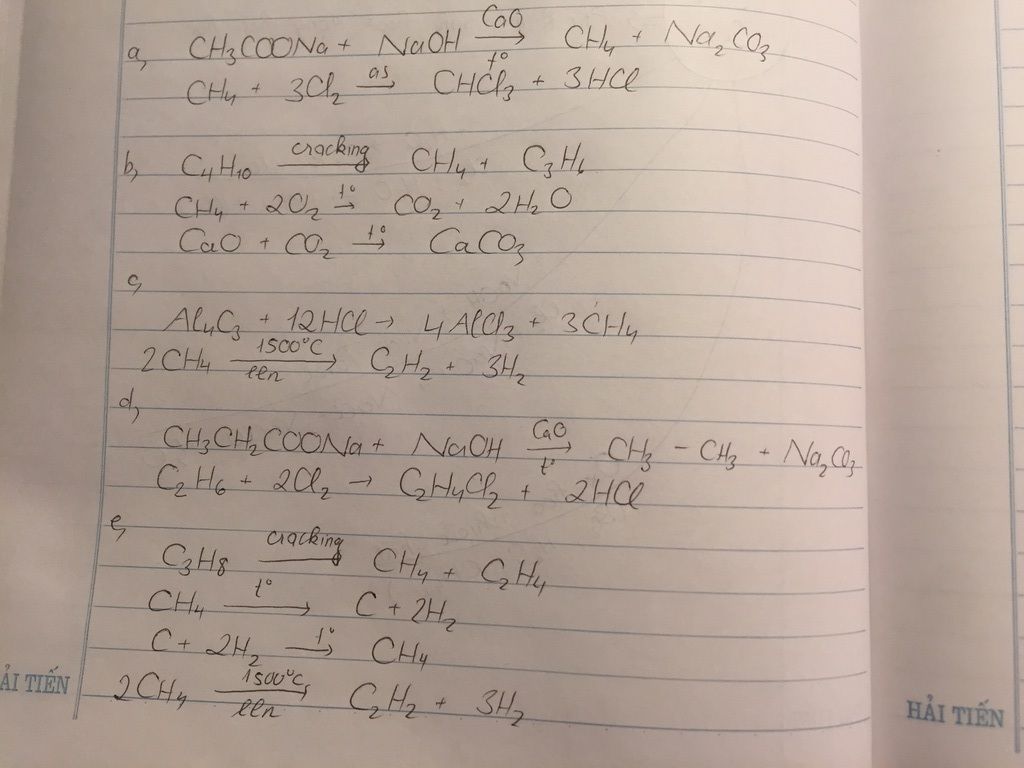 a, CH3COONa + NaOH CaO→t° CH4 + Na2CO3
CH4 + 3Cl2 as→ CHCl3 + 3HCl
b, C4H10 cracking→ CH4 + C3H6
CH4 + 2O2 t°→ CO2 + 2H2O
CaO + CO2 t°→ CaCO3
c,
Al4C3 + 12HCl → 4AlCl3 + 3CH4
2CH4 1500°C→lln C2H2 + 3H2
d,
CH3CH2COONa + NaOH CaO→t° CH3 - CH3 + Na2CO3
C2H6 + 2Cl2 → C2H4Cl2 + 2HCl
e,
C3H8 cracking→ CH4 + C2H4
CH4 t°→ C + 2H2
C + 2H2 t°→ CH4
2CH4 1500°C→lln C2H2 + 3H2
ẢI TIẾN
HẢI TIẾN